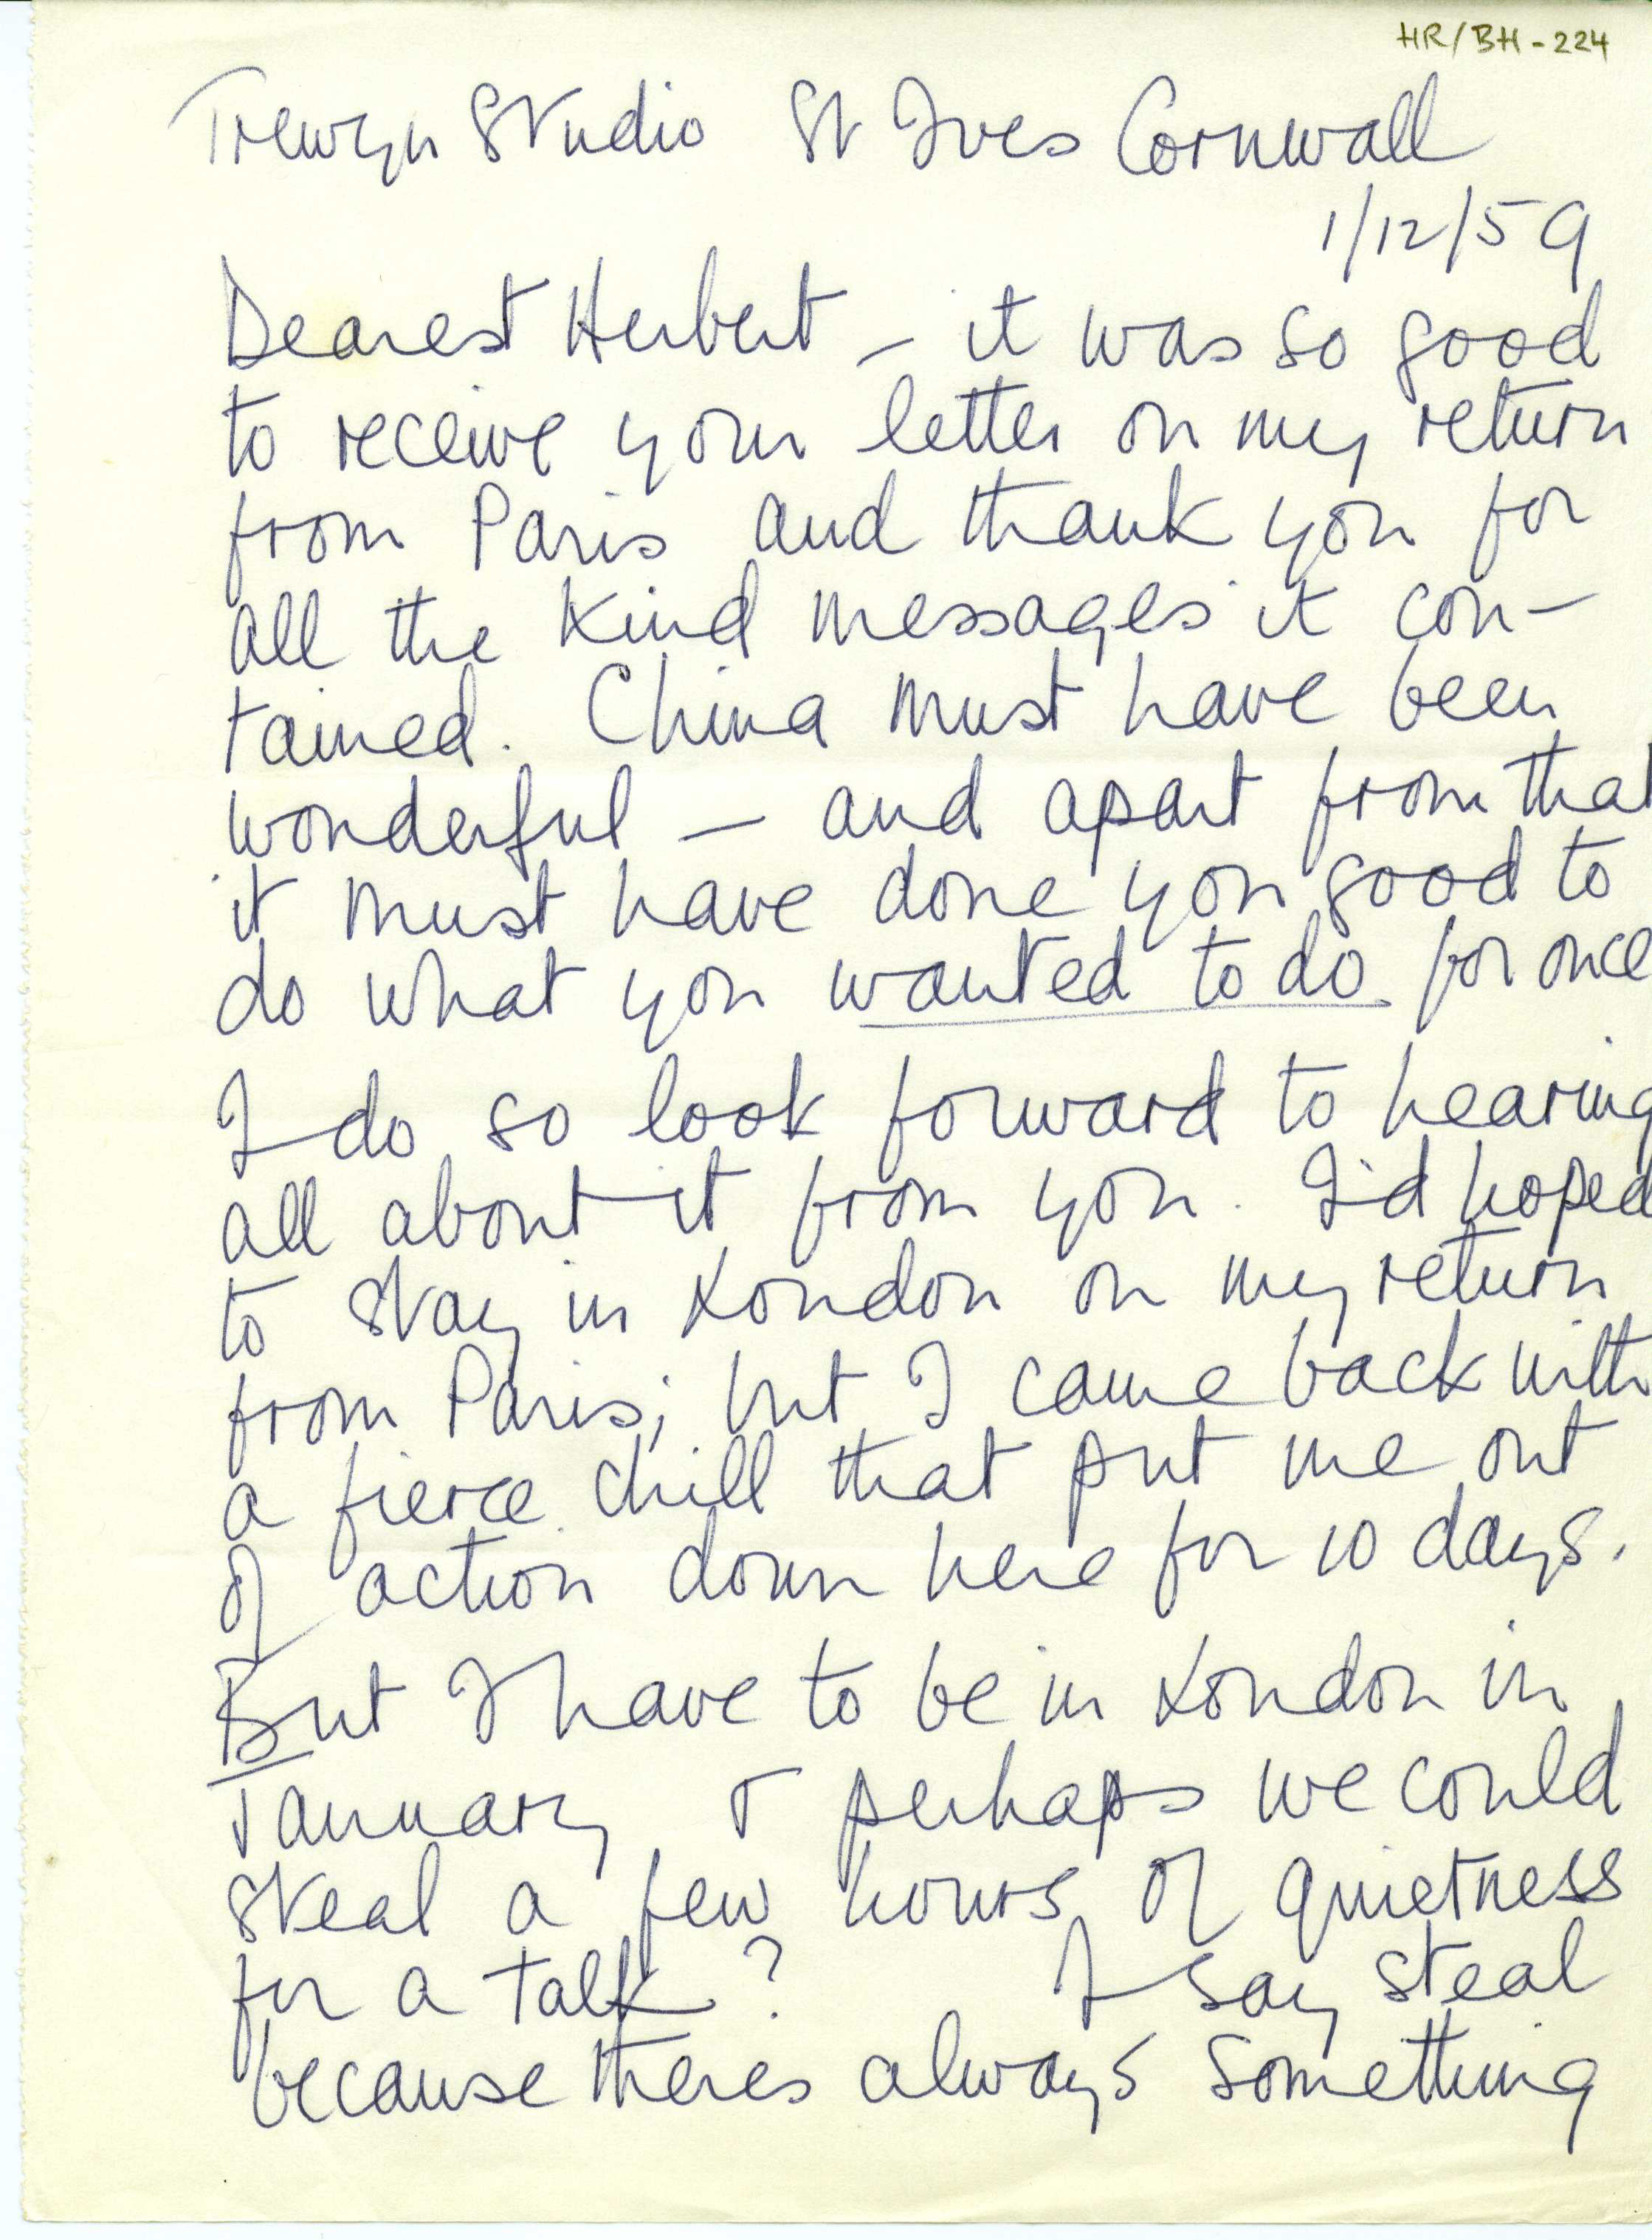 HR/BH-224
Trewyn Studio St Ives Cornwall
1/12/59
Dearest Herbert – it was so good
to receive your letter on my return
from Paris and thank you for
all the kind messages it con-
tained. China must have been
wonderful – and apart from that
it must have done you good to
do what you wanted to do for once
I do so look forward to hearing
all about it from you. I'd hoped
to stay in London on my return
from Paris; but I came back with
a fierce chill that put me out
of action down here for 10 days.
But I have to be in London in
January & perhaps we could
steal a few hours of quietness
for a talk? I say steal
because theres always something